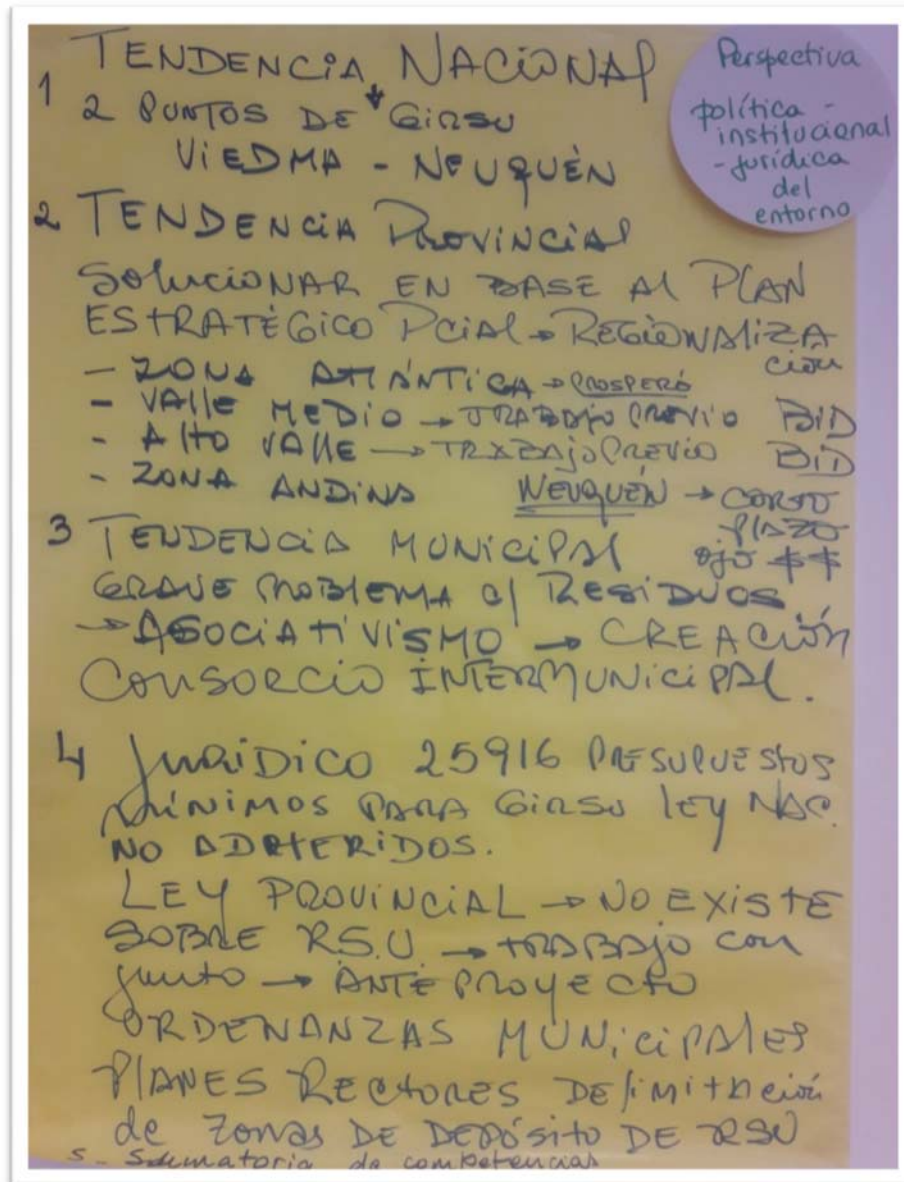 1 TENDENCIA NACIONAL
2 PUNTOS DE GIRSU
VIEDMA - NEUQUÉN
Perspectiva
política -
institucional
- jurídica
del
entorno
2 TENDENCIA PROVINCIAL
SOLUCIONAR EN BASE AL PLAN
ESTRATÉGICO PCIAL → REGIONALIZA
CIÓN
- ZONA ATLÁNTICA → PROSPERÓ
- VALLE MEDIO → TRABAJO PREVIO BID
- ALTO VALLE → TRABAJO PREVIO BID
- ZONA ANDINA NEUQUÉN → CORTO
PLAZO
ojo $$
3 TENDENCIA MUNICIPAL
GRAVE PROBLEMA c/ RESIDUOS
→ ASOCIATIVISMO → CREACIÓN
CONSORCIO INTERMUNICIPAL.
4 JURÍDICO 25916 PRESUPUESTOS
MÍNIMOS PARA GIRSU LEY NAC.
NO ADHERIDOS.
LEY PROVINCIAL → NO EXISTE
SOBRE R.S.U. → TRABAJO CON
JUNTO → ANTEPROYECTO
ORDENANZAS MUNICIPALES
PLANES RECTORES DELIMITACIÓN
de ZONAS DE DEPÓSITO DE RSU
5 - Sumatoria de competencias